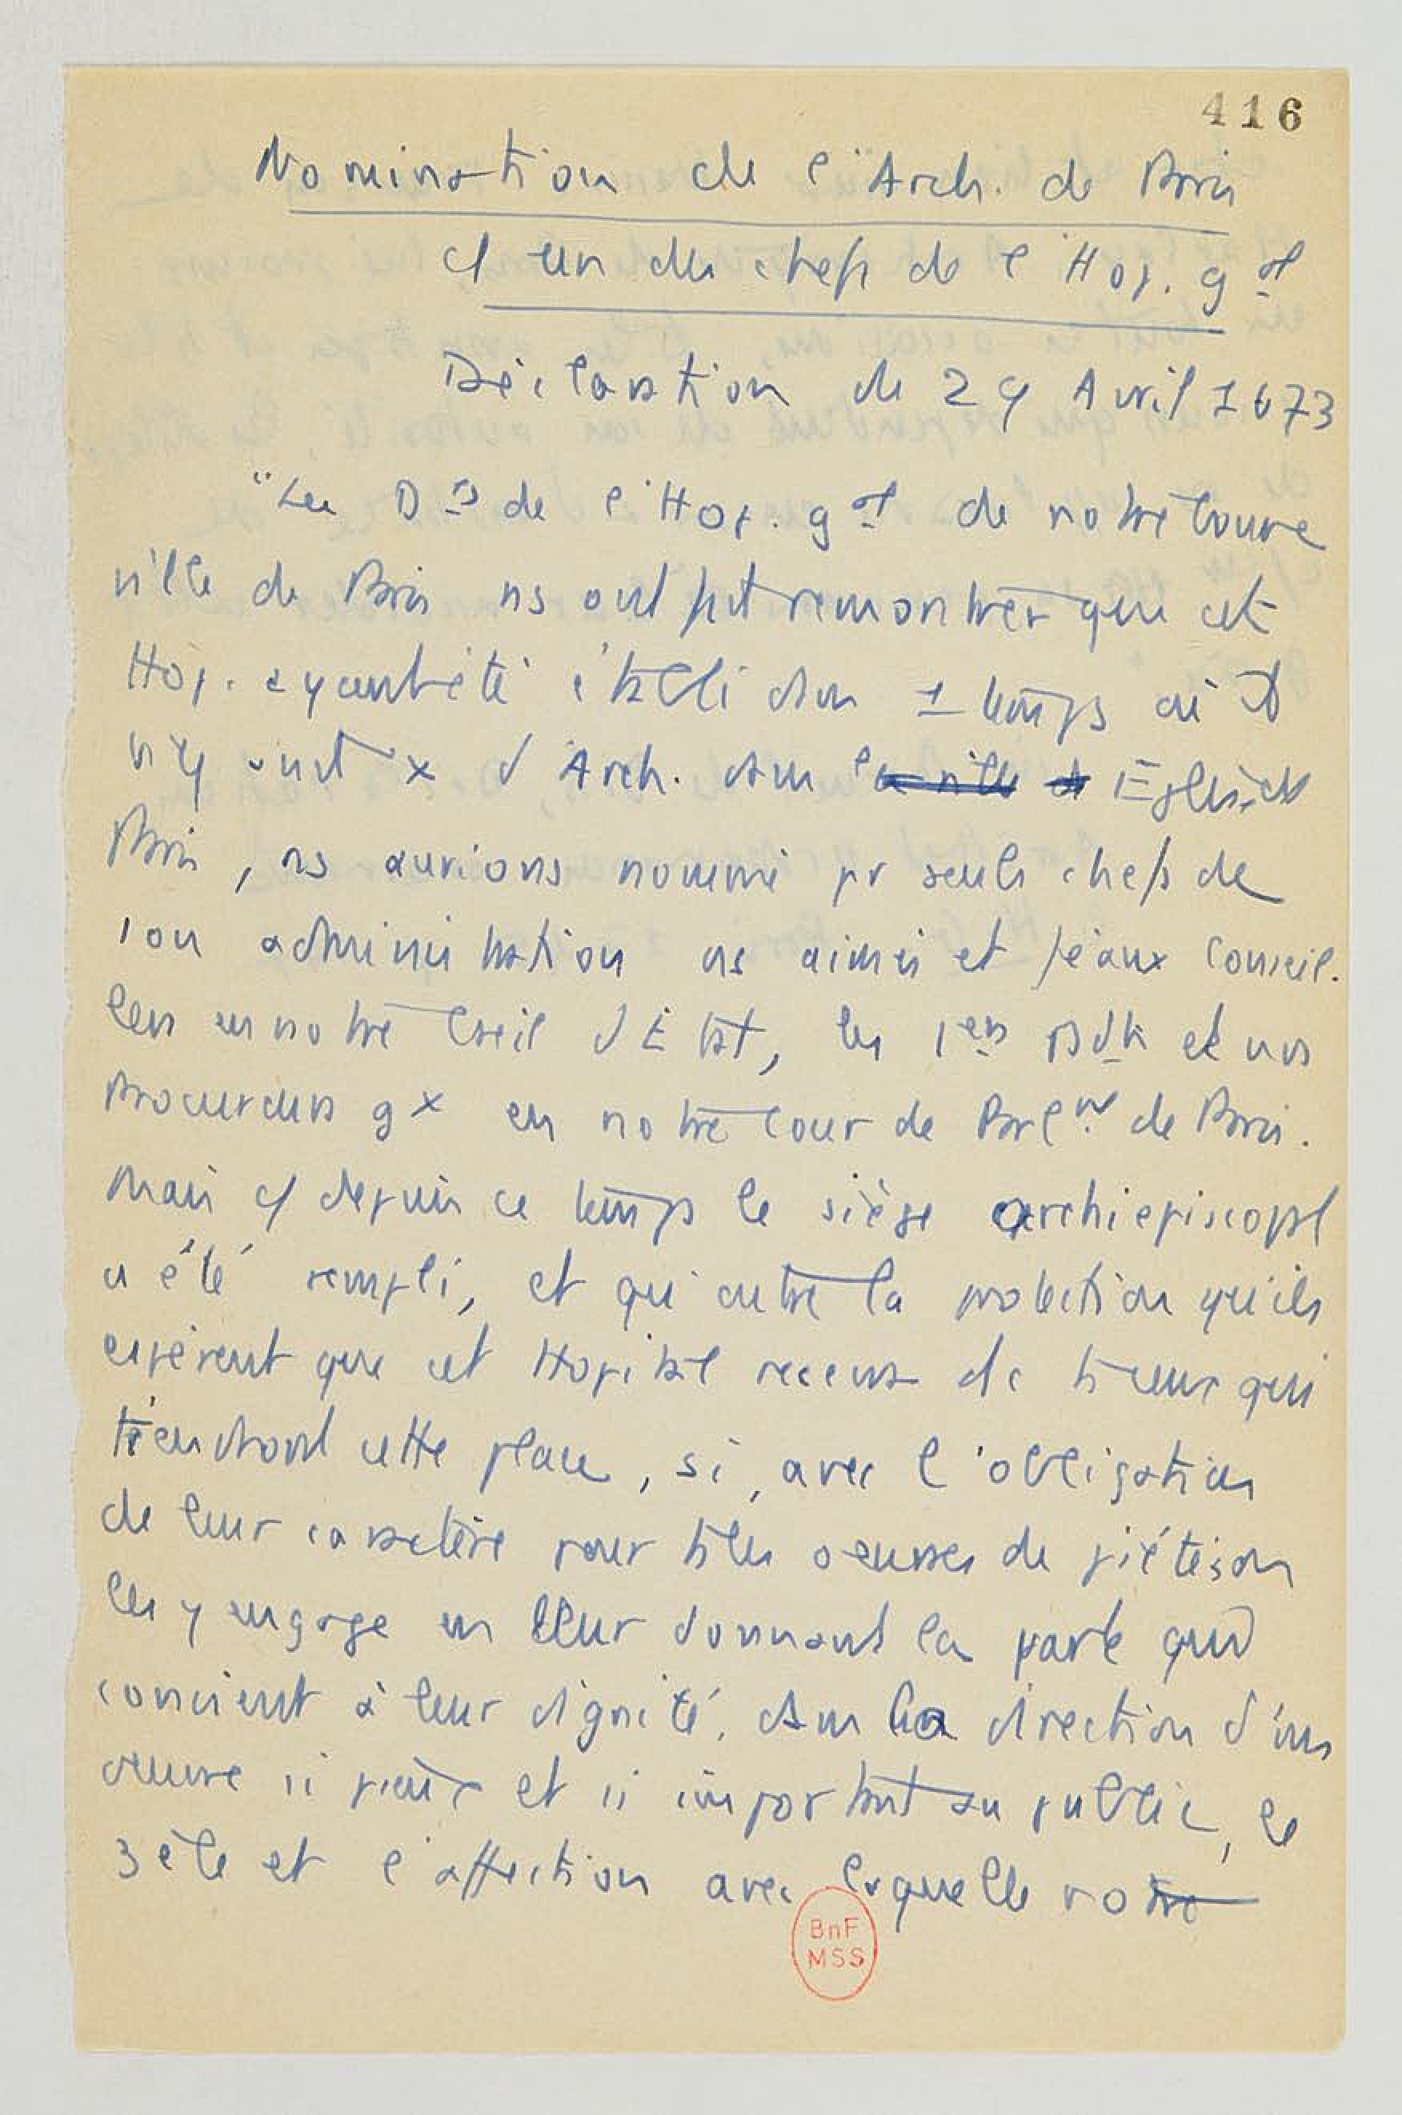 416
Nomination de l'Arch. de Paris
c/ un des chefs de l'Hop. gal
Déclaration de 29 Avril 1673
"Les Drs de l'Hop. gal de notre bonne
ville de Paris ns ont fait remontrer que cet
Hop. ayant été établi dans 1 temps où il
n'y avait x d'Arch. dans la ville d Eglise de
Paris, ns aurions nommé pr seuls chefs de
son administration ns aimés et féaux conseil.
lers en notre Cseil d'Etat, les 1ers Pdts et nos
Procureurs gx en notre cour de Parlnt de Paris.
Mais c/ depuis ce temps le siège archiepiscopal
a été rempli, et qu'outre la protection qu'ils
espèrent que cet Hopital recevra de ts ceux qui
tiendront cette place, si, avec l'obligation
de leur caractère pour ttes oeuvres de piété, on
les y engage en leur donnant la part qui
convient à leur dignité, dans la direction d'une
oeuvre si pieuse et si important au public, le
zèle et l'affection avec laquelle notre
BnF
MSS